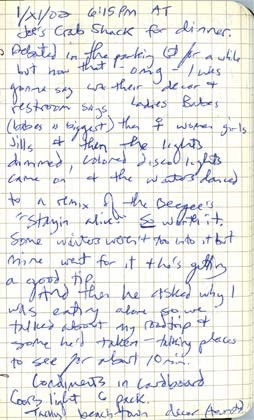 1/21/02 6:15pm AT
Joe's Crab Shack for dinner.
Debated in the parking lot for a while
but now that I - omg - I was
gonna say love their decor &
restroom says Ladies Babes
(babes is biggest) then ♀ women girls
Jills & then the lights
dimmed, colored disco lights
came on & the waiters danced
to a remix of the Beegee's
"Stayin alive" So worth it.
Some waiters weren't too into it but
mine went for it & he's getting
a good tip.
And then he asked why I
was eating alone so we
talked about my roadtrip &
some he'd taken - talking places
to see for about 10 min.
Condiments in cardboard
Coors light 6 pack.
Tacky beach town decor